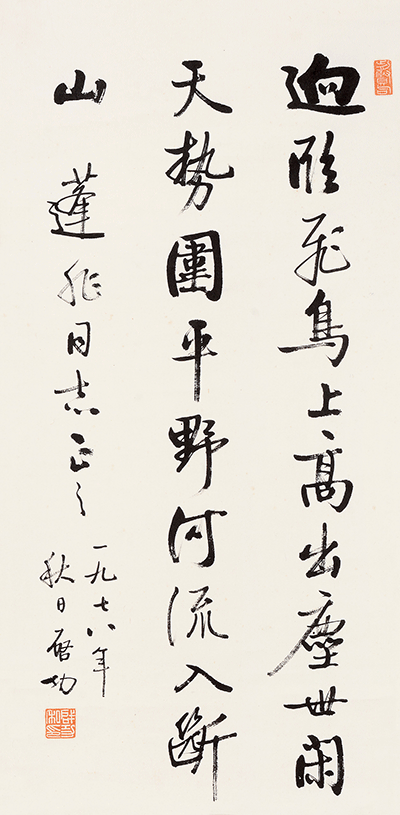 迥臨飛鳥上高出塵世間
天勢圍平野河流入斷
山 蓬非同志正之
一九七八年
秋日啟功